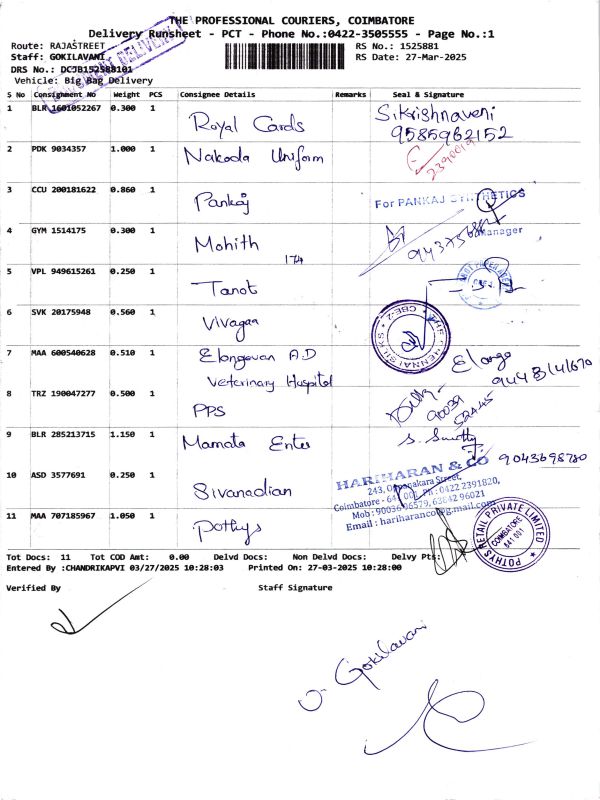 THE PROFESSIONAL COURIERS, COIMBATORE
Delivery Runsheet - PCT - Phone No.:0422-3505555 - Page No.:1
Route: RAJASTREET
RS No.: 1525881
Staff: GOKILAVANI
RS Date: 27-Mar-2025
DRS No.: DCJB152588101
Vehicle: Big Bag Delivery
S No Consignment No Weight PCS Consignee Details Remarks Seal & Signature
1 BLR 1601052267 0.300 1 Royal Cards Sikrishnaveni
9585962152
2 PDK 9034357 1.000 1 Nakoda Uniform
3 CCU 200181622 0.860 1 Pankaj For PANKAJ SYNTHETICS
Manager
4 GYM 1514175 0.300 1 Mohith 174
5 VPL 949615261 0.250 1 Tanot
6 SVK 20175948 0.560 1 Vivagaa
THE CHENNAI SILKS CBE-2
7 MAA 600540628 0.510 1 Elangovan A.D Elango
Veterinary Hospital
8 TRZ 190047277 0.500 1 PPS
9 BLR 285213715 1.150 1 Mamata Enter
9043698780
10 ASD 3577691 0.250 1 Sivanadian HARIHARAN & CO
243, Oppanakara Street,
Coimbatore - 641 001. Ph : 0422 2391820,
Mob : 90036 06579, 63842 96021
Email : hariharanco@gmail.com
11 MAA 707185967 1.050 1 Pothys
POTHYS RETAIL PRIVATE LIMITED COIMBATORE 641 001
Tot Docs: 11 Tot COD Amt: 0.00 Delvd Docs: Non Delvd Docs: Delvy Pts:
Entered By :CHANDRIKAPVI 03/27/2025 10:28:03 Printed On: 27-03-2025 10:28:00
Verified By Staff Signature
Gokilavani